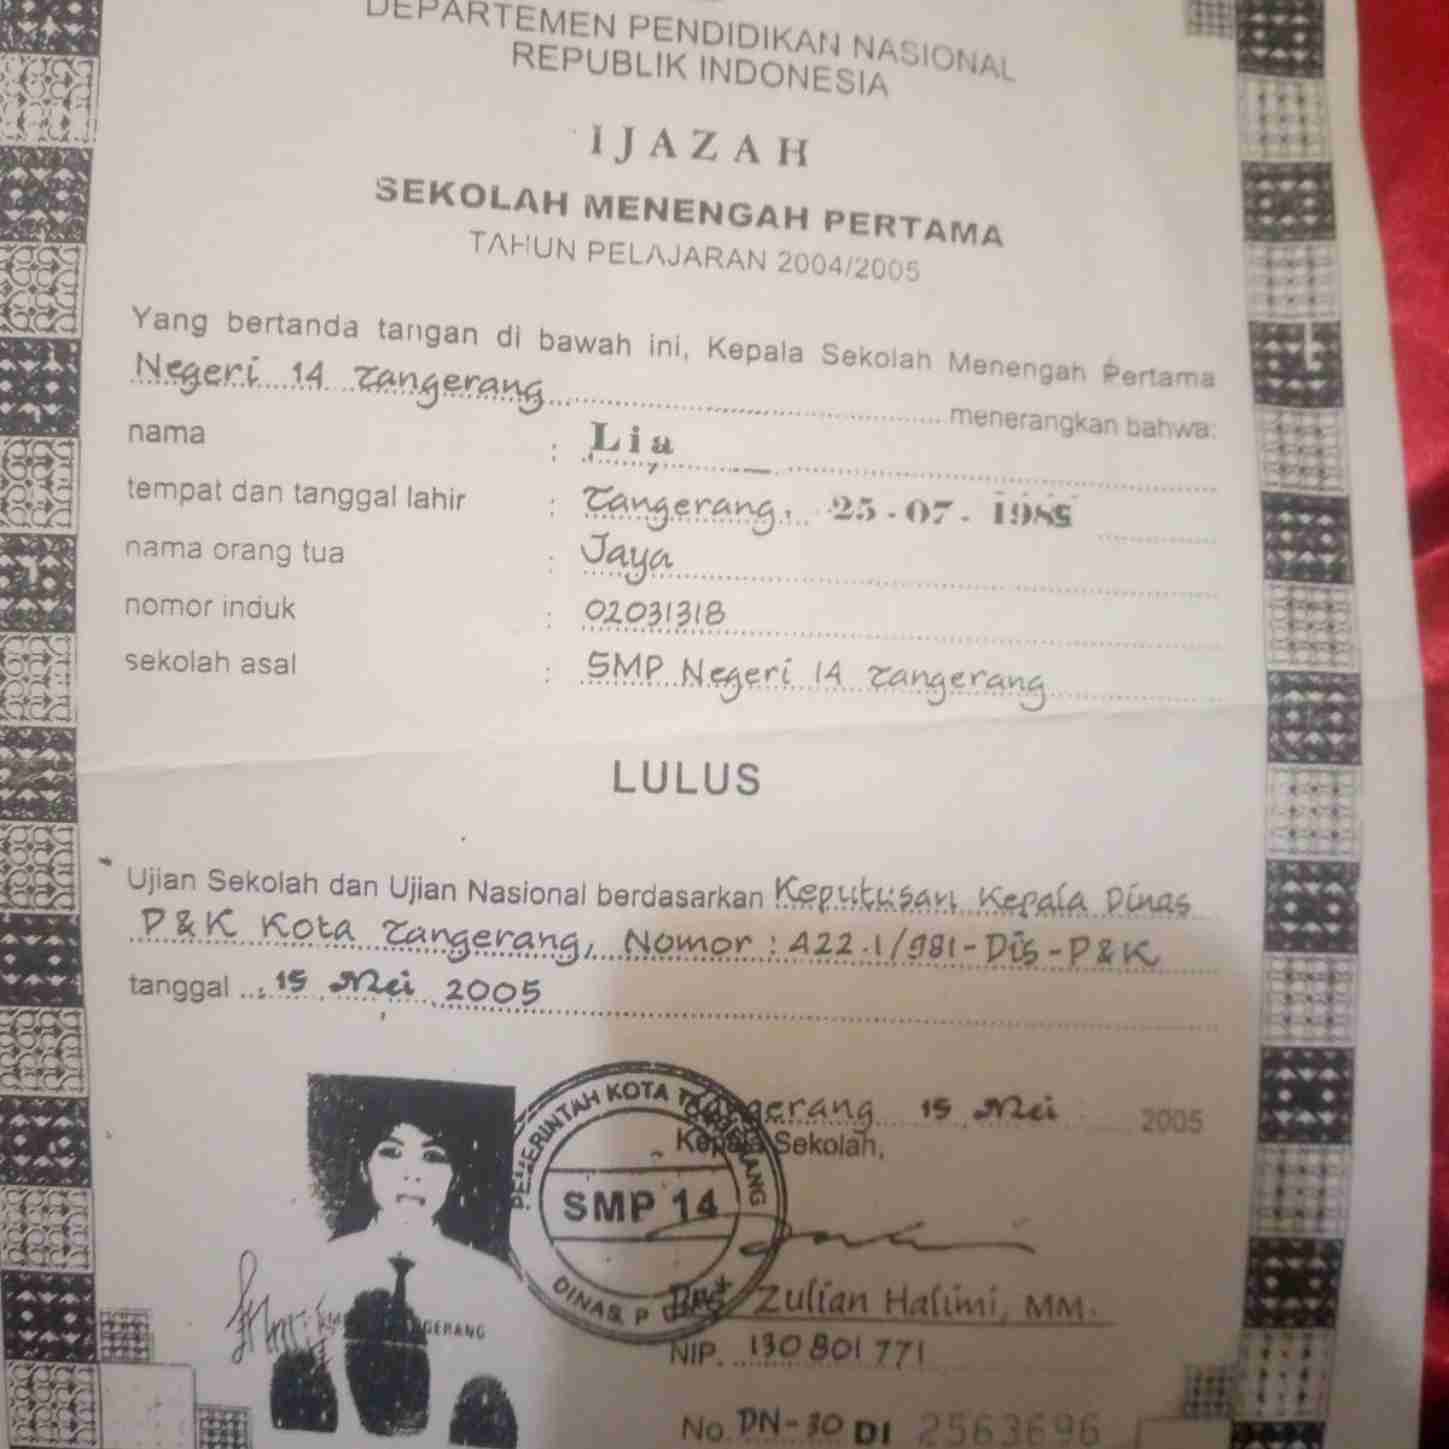 DEPARTEMEN PENDIDIKAN NASIONAL
REPUBLIK INDONESIA
IJAZAH
SEKOLAH MENENGAH PERTAMA
TAHUN PELAJARAN 2004/2005
Yang bertanda tangan di bawah ini, Kepala Sekolah Menengah Pertama
Negeri 14 Tangerang menerangkan bahwa:
nama : Lia
tempat dan tanggal lahir : Tangerang, 25-07-1985
nama orang tua : Jaya
nomor induk : 02031318
sekolah asal : SMP Negeri 14 Tangerang
LULUS
Ujian Sekolah dan Ujian Nasional berdasarkan Keputusan Kepala Dinas
P&K Kota Tangerang, Nomor : 422.1/981-Dis-P&K
tanggal 15 Mei 2005
Tangerang 15 Mei 2005
Kepala Sekolah,
PEMERINTAH KOTA TANGERANG
SMP 14
DINAS P
Zulian Halimi, MM.
NIP. 130 801 771
No. DN-30 DI 2563696